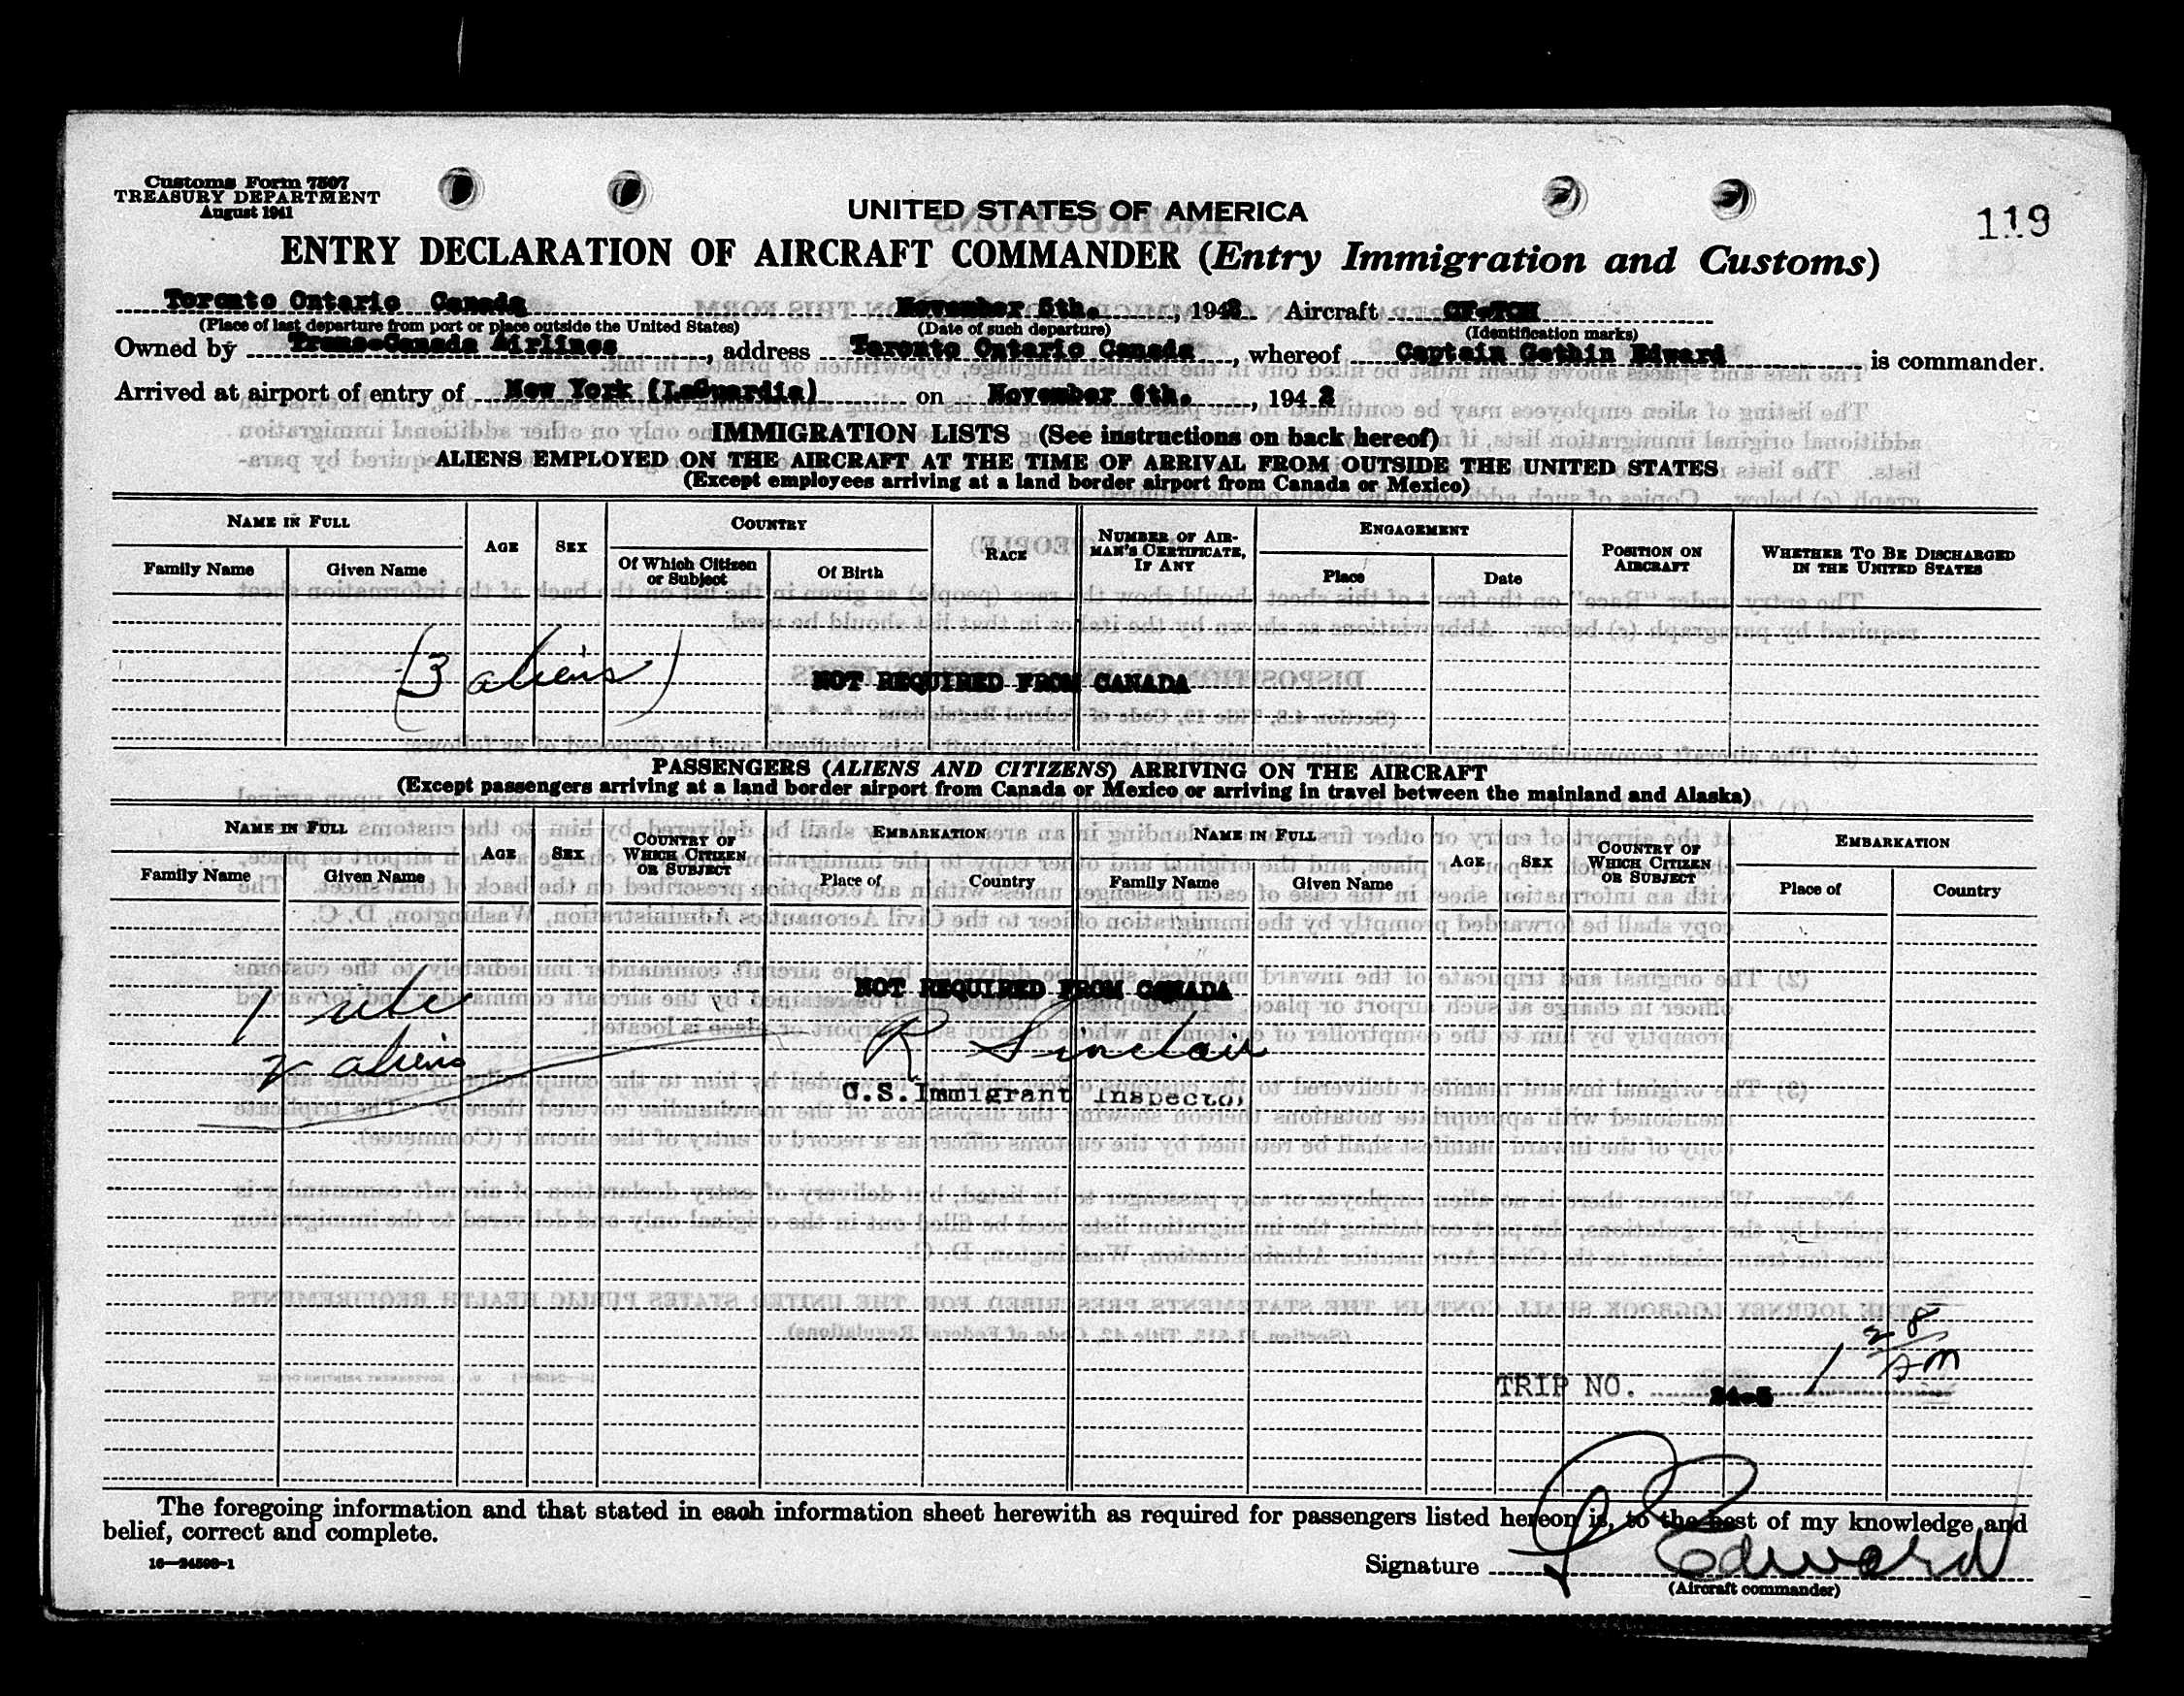 Customs Form 7507
TREASURY DEPARTMENT
August 1941
UNITED STATES OF AMERICA
119
ENTRY DECLARATION OF AIRCRAFT COMMANDER (Entry Immigration and Customs)
Toronto Ontario Canada November 5th. , 1942 Aircraft CF-TCH
(Place of last departure from port or place outside the United States) (Date of such departure) (Identification marks)
Owned by Trans-Canada Airlines , address Toronto Ontario Canada , whereof Captain Gethin Edward is commander.
Arrived at airport of entry of New York (LaGuardia) on November 6th. , 1942
IMMIGRATION LISTS (See instructions on back hereof)
ALIENS EMPLOYED ON THE AIRCRAFT AT THE TIME OF ARRIVAL FROM OUTSIDE THE UNITED STATES
(Except employees arriving at a land border airport from Canada or Mexico)
NAME IN FULL AGE SEX COUNTRY RACE NUMBER OF AIRMAN'S CERTIFICATE, IF ANY ENGAGEMENT POSITION ON AIRCRAFT WHETHER TO BE DISCHARGED IN THE UNITED STATES
Family Name Given Name Of Which Citizen or Subject Of Birth Place Date
(3 aliens) NOT REQUIRED FROM CANADA
PASSENGERS (ALIENS AND CITIZENS) ARRIVING ON THE AIRCRAFT
(Except passengers arriving at a land border airport from Canada or Mexico or arriving in travel between the mainland and Alaska)
NAME IN FULL AGE SEX COUNTRY OF WHICH CITIZEN OR SUBJECT EMBARKATION NAME IN FULL AGE SEX COUNTRY OF WHICH CITIZEN OR SUBJECT EMBARKATION
Family Name Given Name Place of Country Family Name Given Name Place of Country
NOT REQUIRED FROM CANADA
1
2 aliens R Sinclair
U.S. Immigrant Inspector
TRIP NO. 24-5 1 28 AM
The foregoing information and that stated in each information sheet herewith as required for passengers listed hereon is, to the best of my knowledge and
belief, correct and complete.
16—24598-1
Signature Edward
(Aircraft commander)